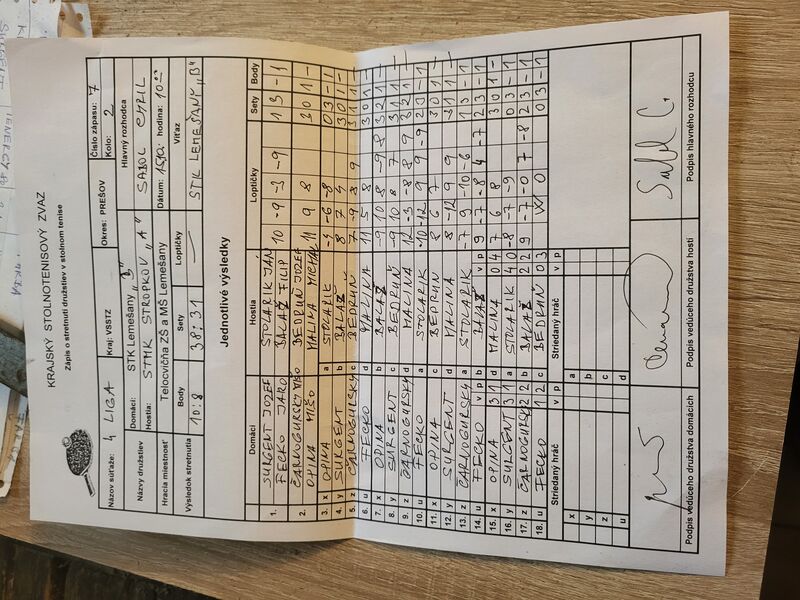 KRAJSKÝ STOLNOTENISOVÝ ZVAZ
Zápis o stretnutí družstiev v stolnom tenise
Názov súťaže: 4 LIGA Kraj: VSSTZ Okres: PREŠOV Číslo zápasu: 7
Kolo: 2
Názvy družstiev Domáci: STK Lemešany "B" Hlavný rozhodca
Hostia: STMK STROPKOV "A" SABOL CYRIL
Hracia miestnosť Telocvičňa ZŠ a MŠ Lemešany Dátum: hodina: 10
Výsledok stretnutia Body Sety Loptičky Víťaz
10:8 38:31 — STK LEMEŠANY "B"
Jednotlivé výsledky
Domáci Hostia Loptičky Sety Body
1. SURGENT JOZEF STOLARIK JÁN 10 -9 -3 -9 1 3 - 1
FECKO JARO BALAŽ FILIP
2. ČARNOGURSKÝ MIŠO BEDRUŇ JOZEF 11 9 8 3 0 1 -
OPINA MIŠO MALINA MICHAL
3. x OPINA a STOLARIK -4 -6 -8 0 3 - 1
4. y SURGENT b BALAŽ 8 7 4 3 0 1 -
5. z ČARNOGURSKÝ c BEDRUŇ 7 -9 8 9 3 1 1 -
6. u FECKO d MALINA 11 5 8 3 0 1 -
7. x OPINA b BALAŽ
8. y SURGENT c BEDRUŇ
9. z ČARNOGURSKÝ d MALINA
10. u FECKO a STOLARIK
11. x OPINA c BEDRUŇ 8 6 7 3 0 1 -
12. y SURGENT d MALINA 8 -12 9 9 3 1 1 -
13. z ČARNOGURSKÝ a STOLARIK -7 9 -10 -6 1 3 - 1
14. u FECKO b BALAŽ 9 -7 -8 4 -7 2 3 - 1
v p v p
15. x OPINA 3 1 d MALINA 0 4 7 6 8 3 0 1 -
16. y SURGENT 3 1 a STOLARIK 4 0 -8 -7 -9 0 3 - 1
17. z ČARNOGURSKÝ 2 2 b BALAŽ 2 2 9 -7 -0 7 -8 2 3 - 1
18. u FECKO 1 2 c BEDRUŇ 0 3 0 3 - 1
Striedaný hráč v p Striedaný hráč v p
x a
y b
z c
u d
Podpis vedúceho družstva domácich Podpis vedúceho družstva hostí Podpis hlavného rozhodcu